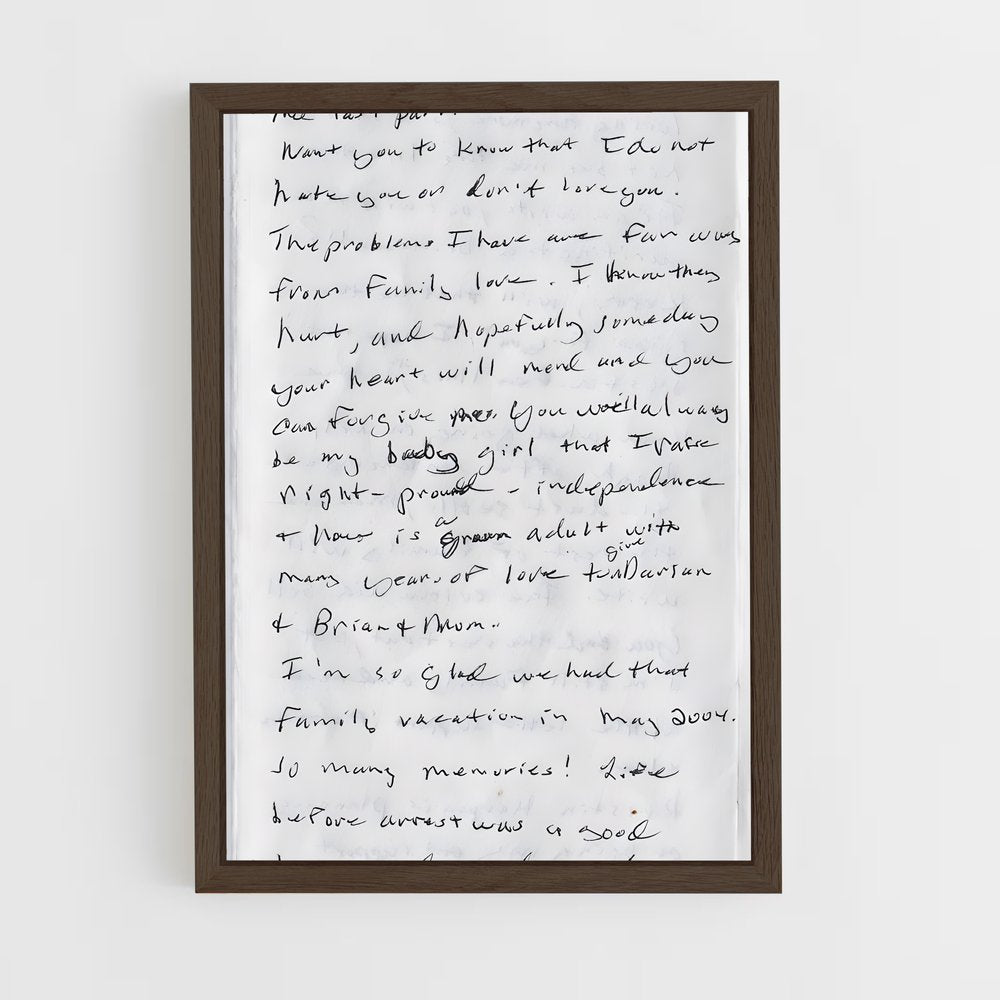 the last part.
Want you to know that I do not
hate you or don't love you.
The problems I have are far away
from Family love. I know they
hurt, and hopefully someday
your heart will mend and you
can forgive me. You will always
be my baby girl that I raise
right - proud - independence
+ now is a grown adult with
many years of love to give Darian
+ Brian + Mom..
I'm so glad we had that
family vacation in May 2004.
So many memories! Life
before arrest was a good